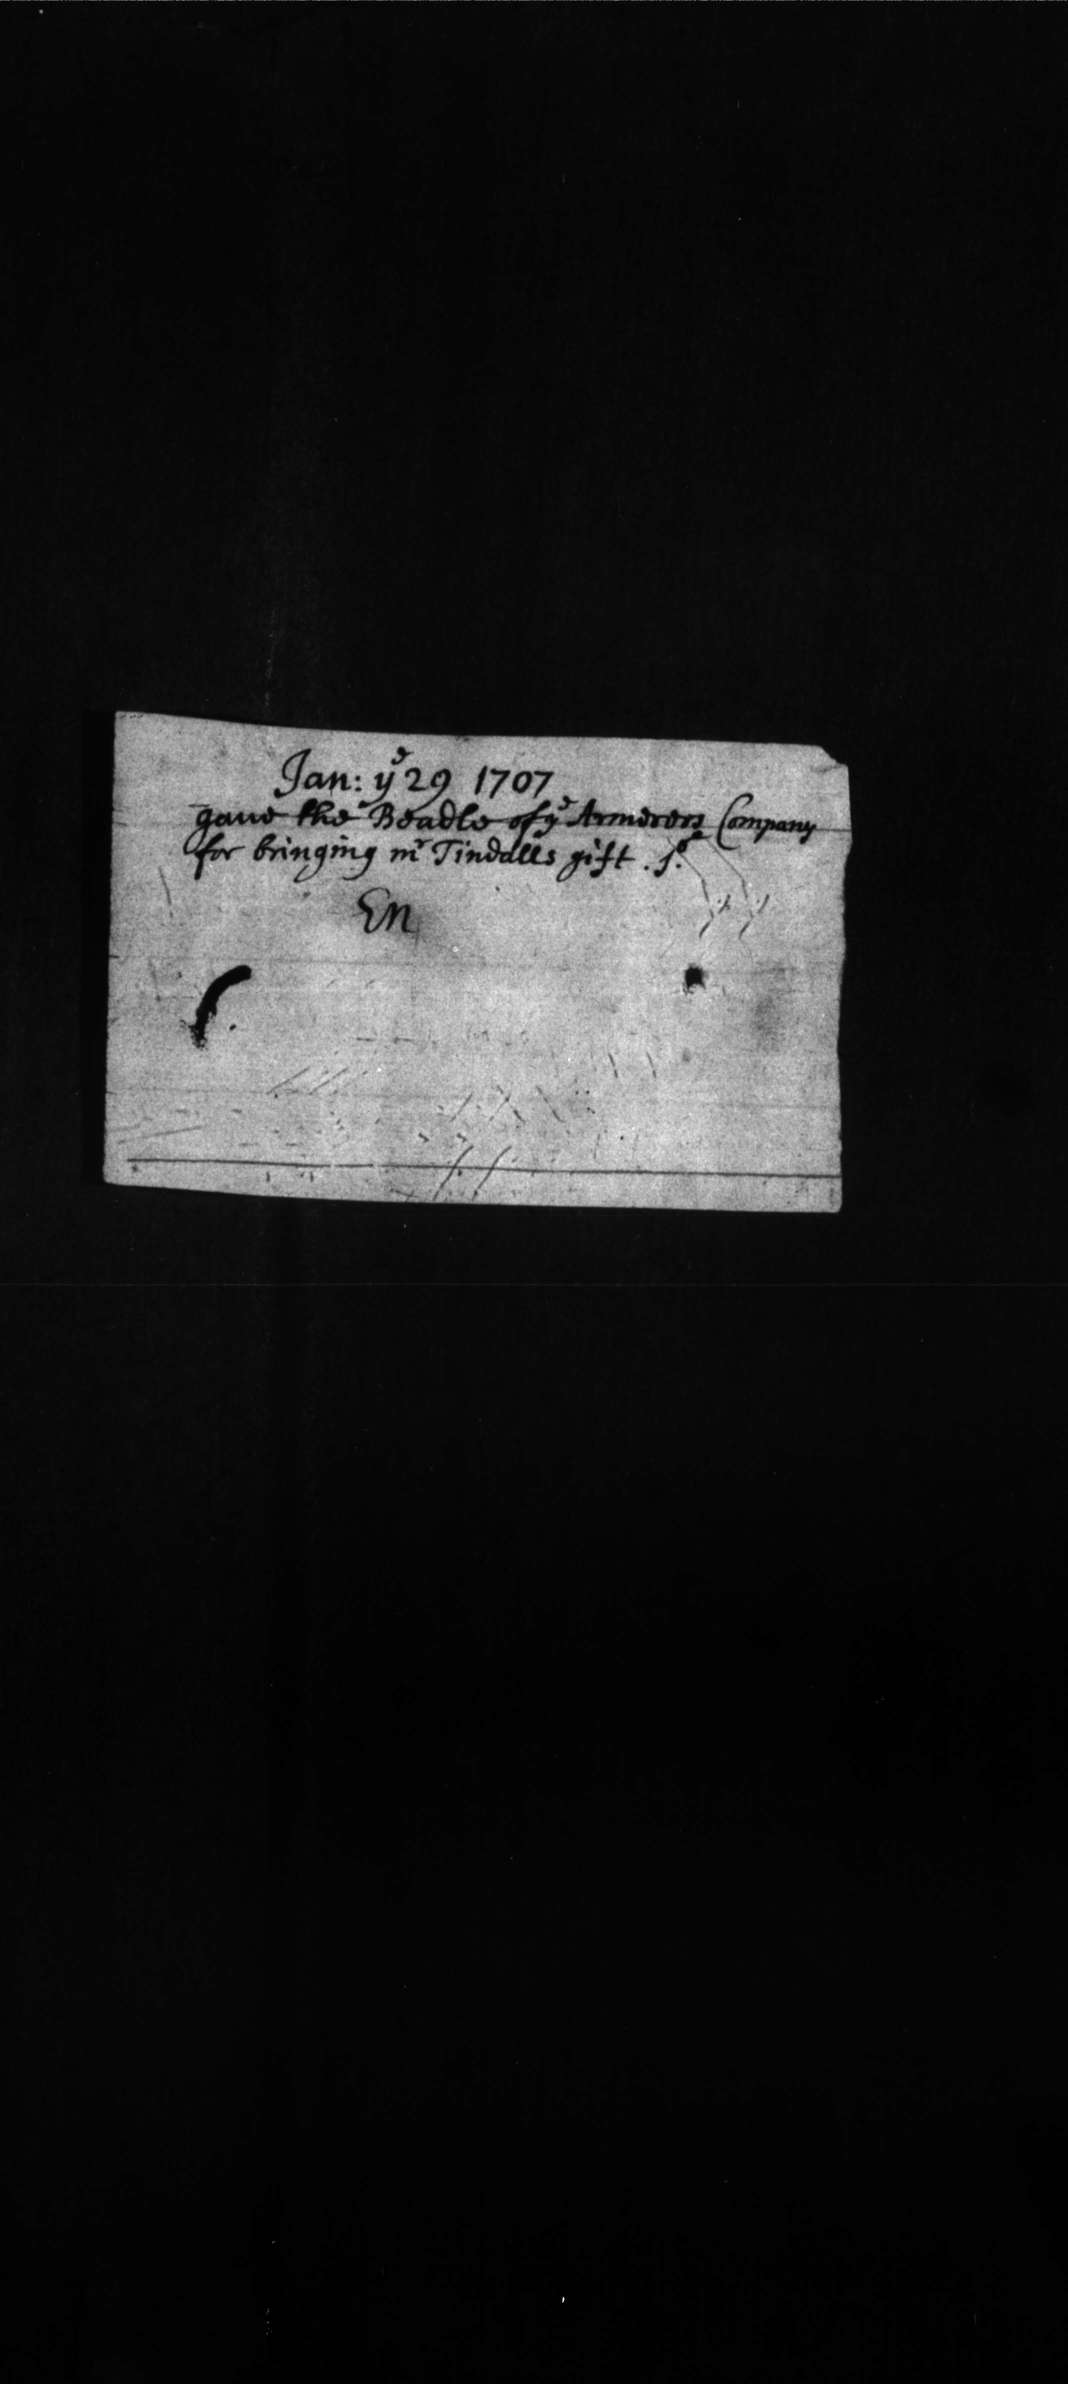 Jan: ye 29 1707
gave the Beadle of ye Armerers Company
for bringing mr Tindalls gift .1s.
EM